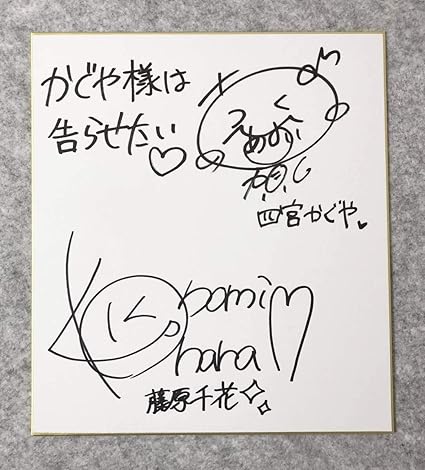 かぐや様は
告らせたい♡
四宮かぐや♥
Konomi
Kohara
藤原千花